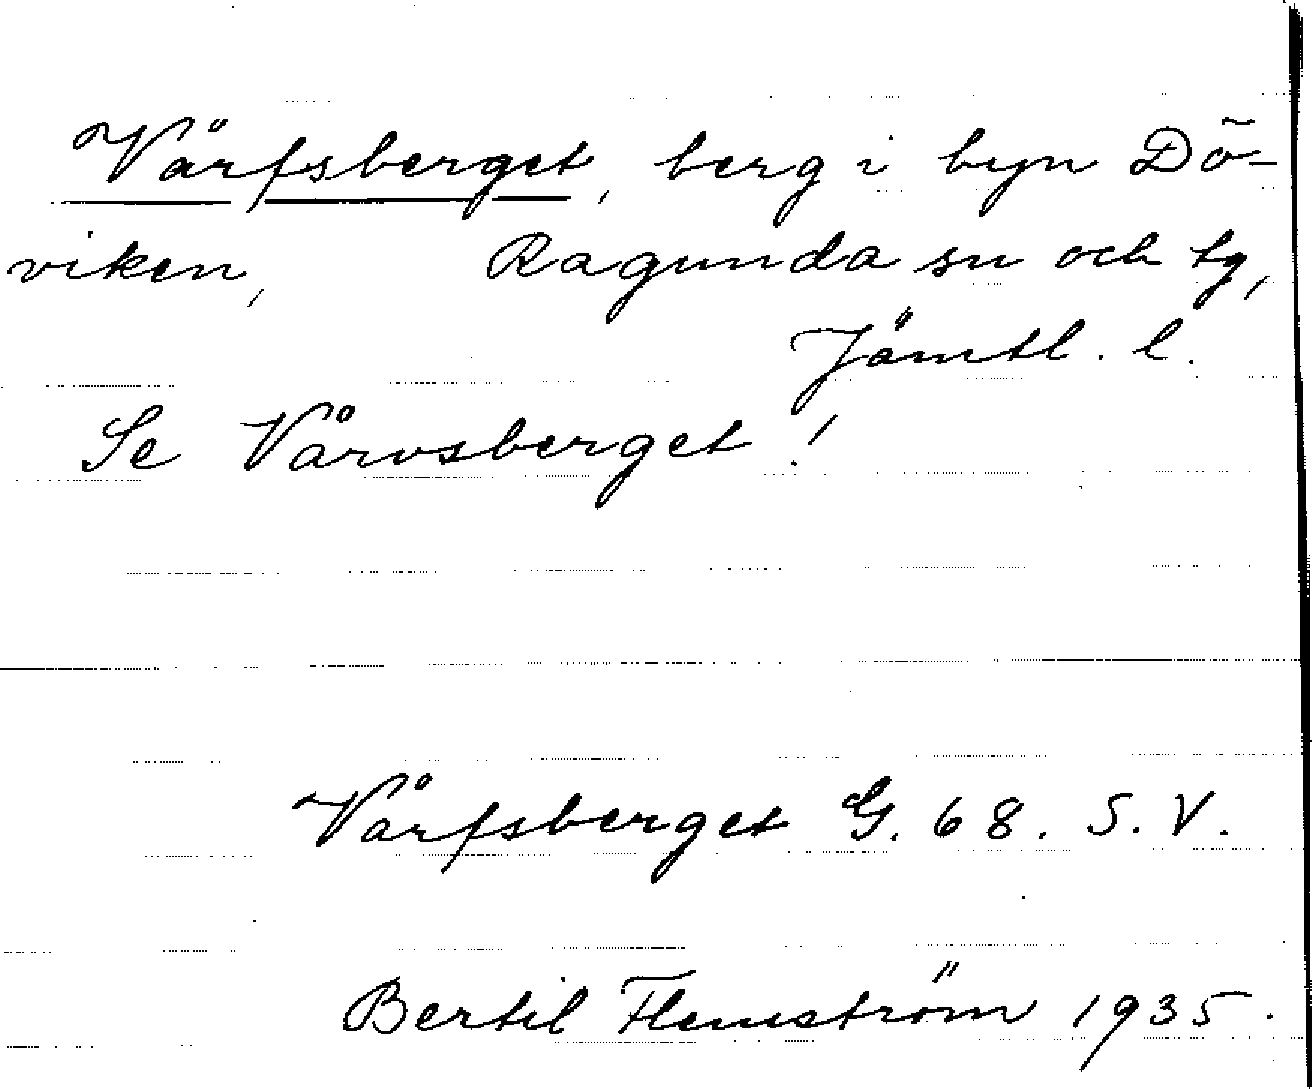 Vårfsberget, berg i byn Dö-
viken, Ragunda sn och tg,
Jämtl. l.
Se Vårvsberget!
Vårfsberget G. 68. S. V.
Bertil Flemström 1935.